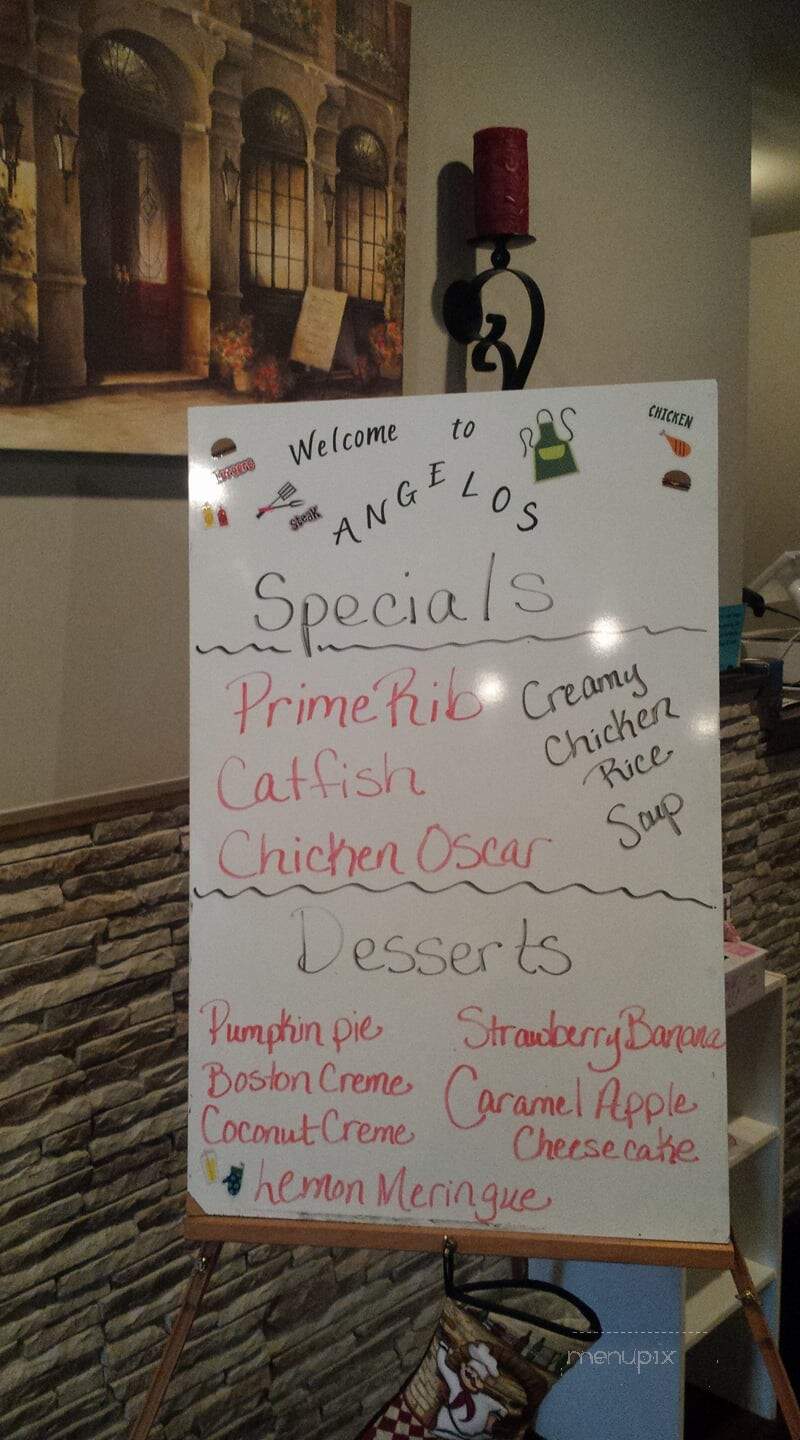 Welcome to
ANGELOS
steak
CHICKEN
Specials
Prime Rib
Catfish
Chicken Oscar
Creamy
Chicken
Rice
Soup
Desserts
Pumpkin pie
Boston Creme
Coconut Creme
Lemon Meringue
Strawberry Banana
Caramel Apple
Cheesecake
menupix